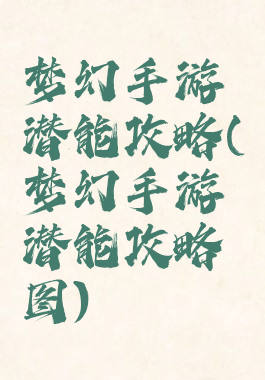 梦幻手游
潜能攻略(
梦幻手游
潜能攻略
图)